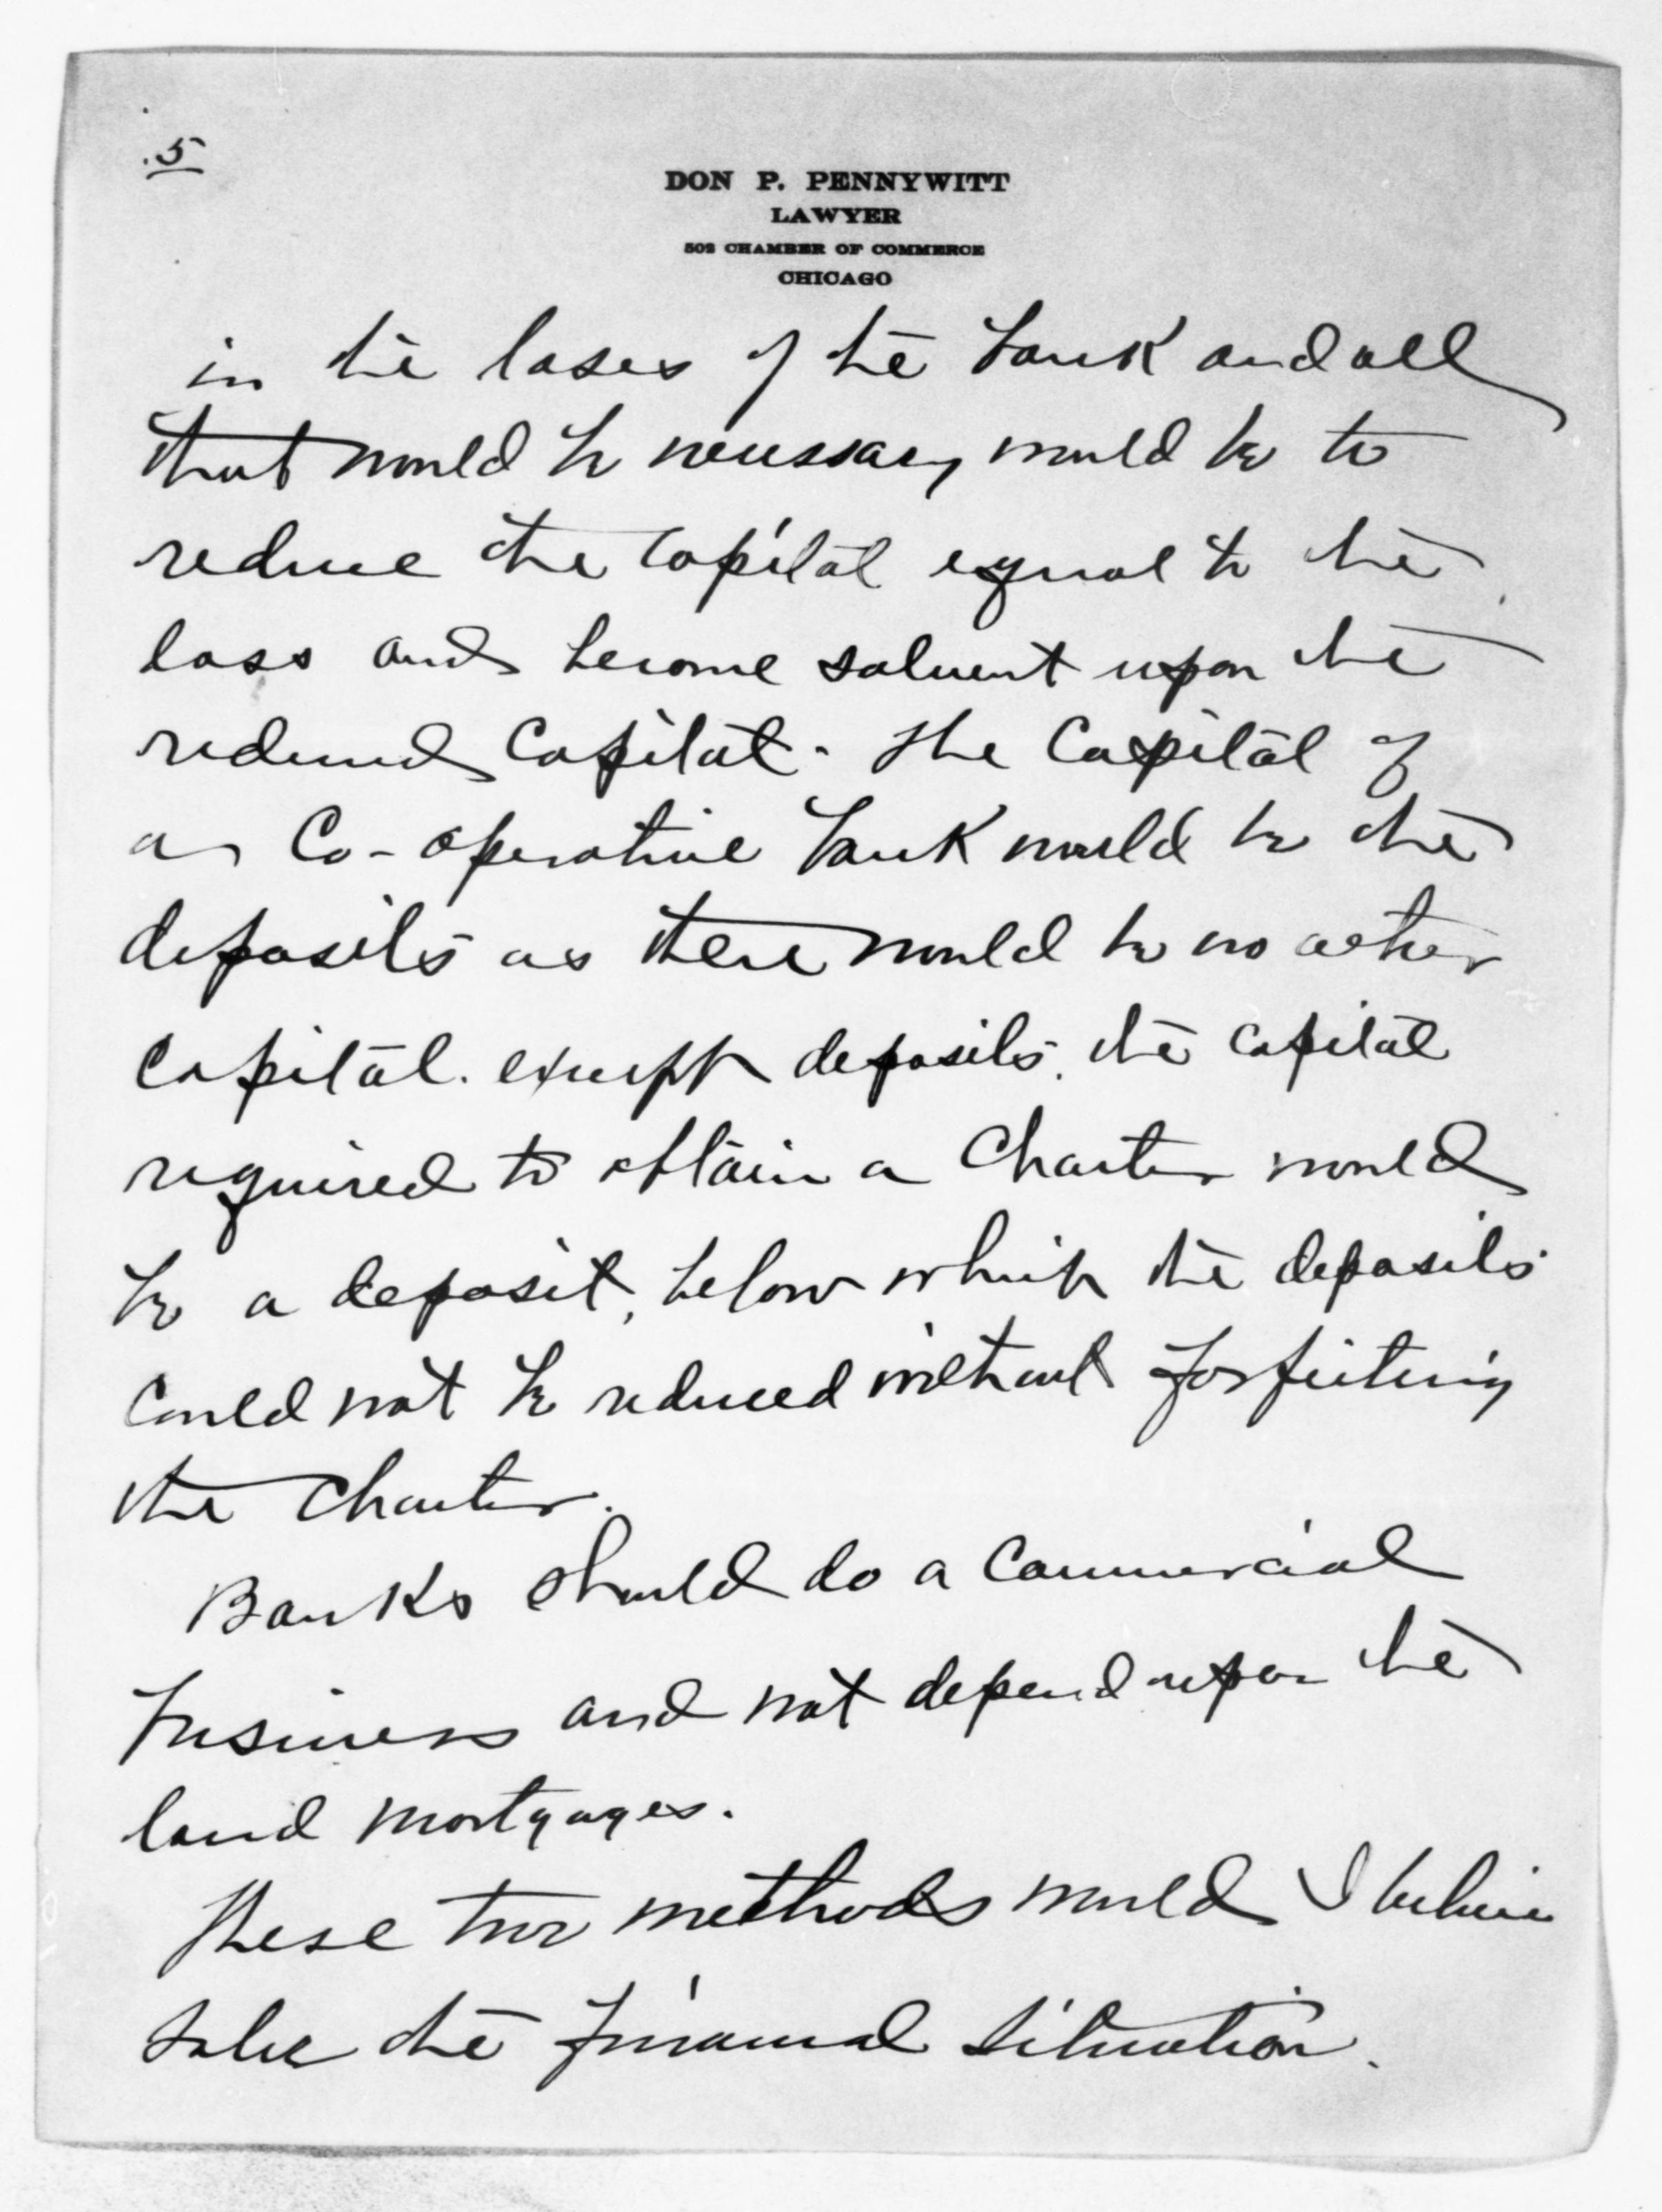 5
DON P. PENNYWITT
LAWYER
502 CHAMBER OF COMMERCE
CHICAGO
in the loses of the bank and all
that would be necessary would be to
reduce the capital equal to the
loss and become solvent upon the
reduced Capital. The Capital of
a Co-operative bank would be the
deposits as there would be no other
capital. except deposits. the capital
required to obtain a Charter would
be a deposit, below which the deposits
could not be reduced without forfeiting
the Charter.
Banks should do a Commercial
business and not depend upon the
land mortgages.
These two methods would I believe
solve the financial situation.